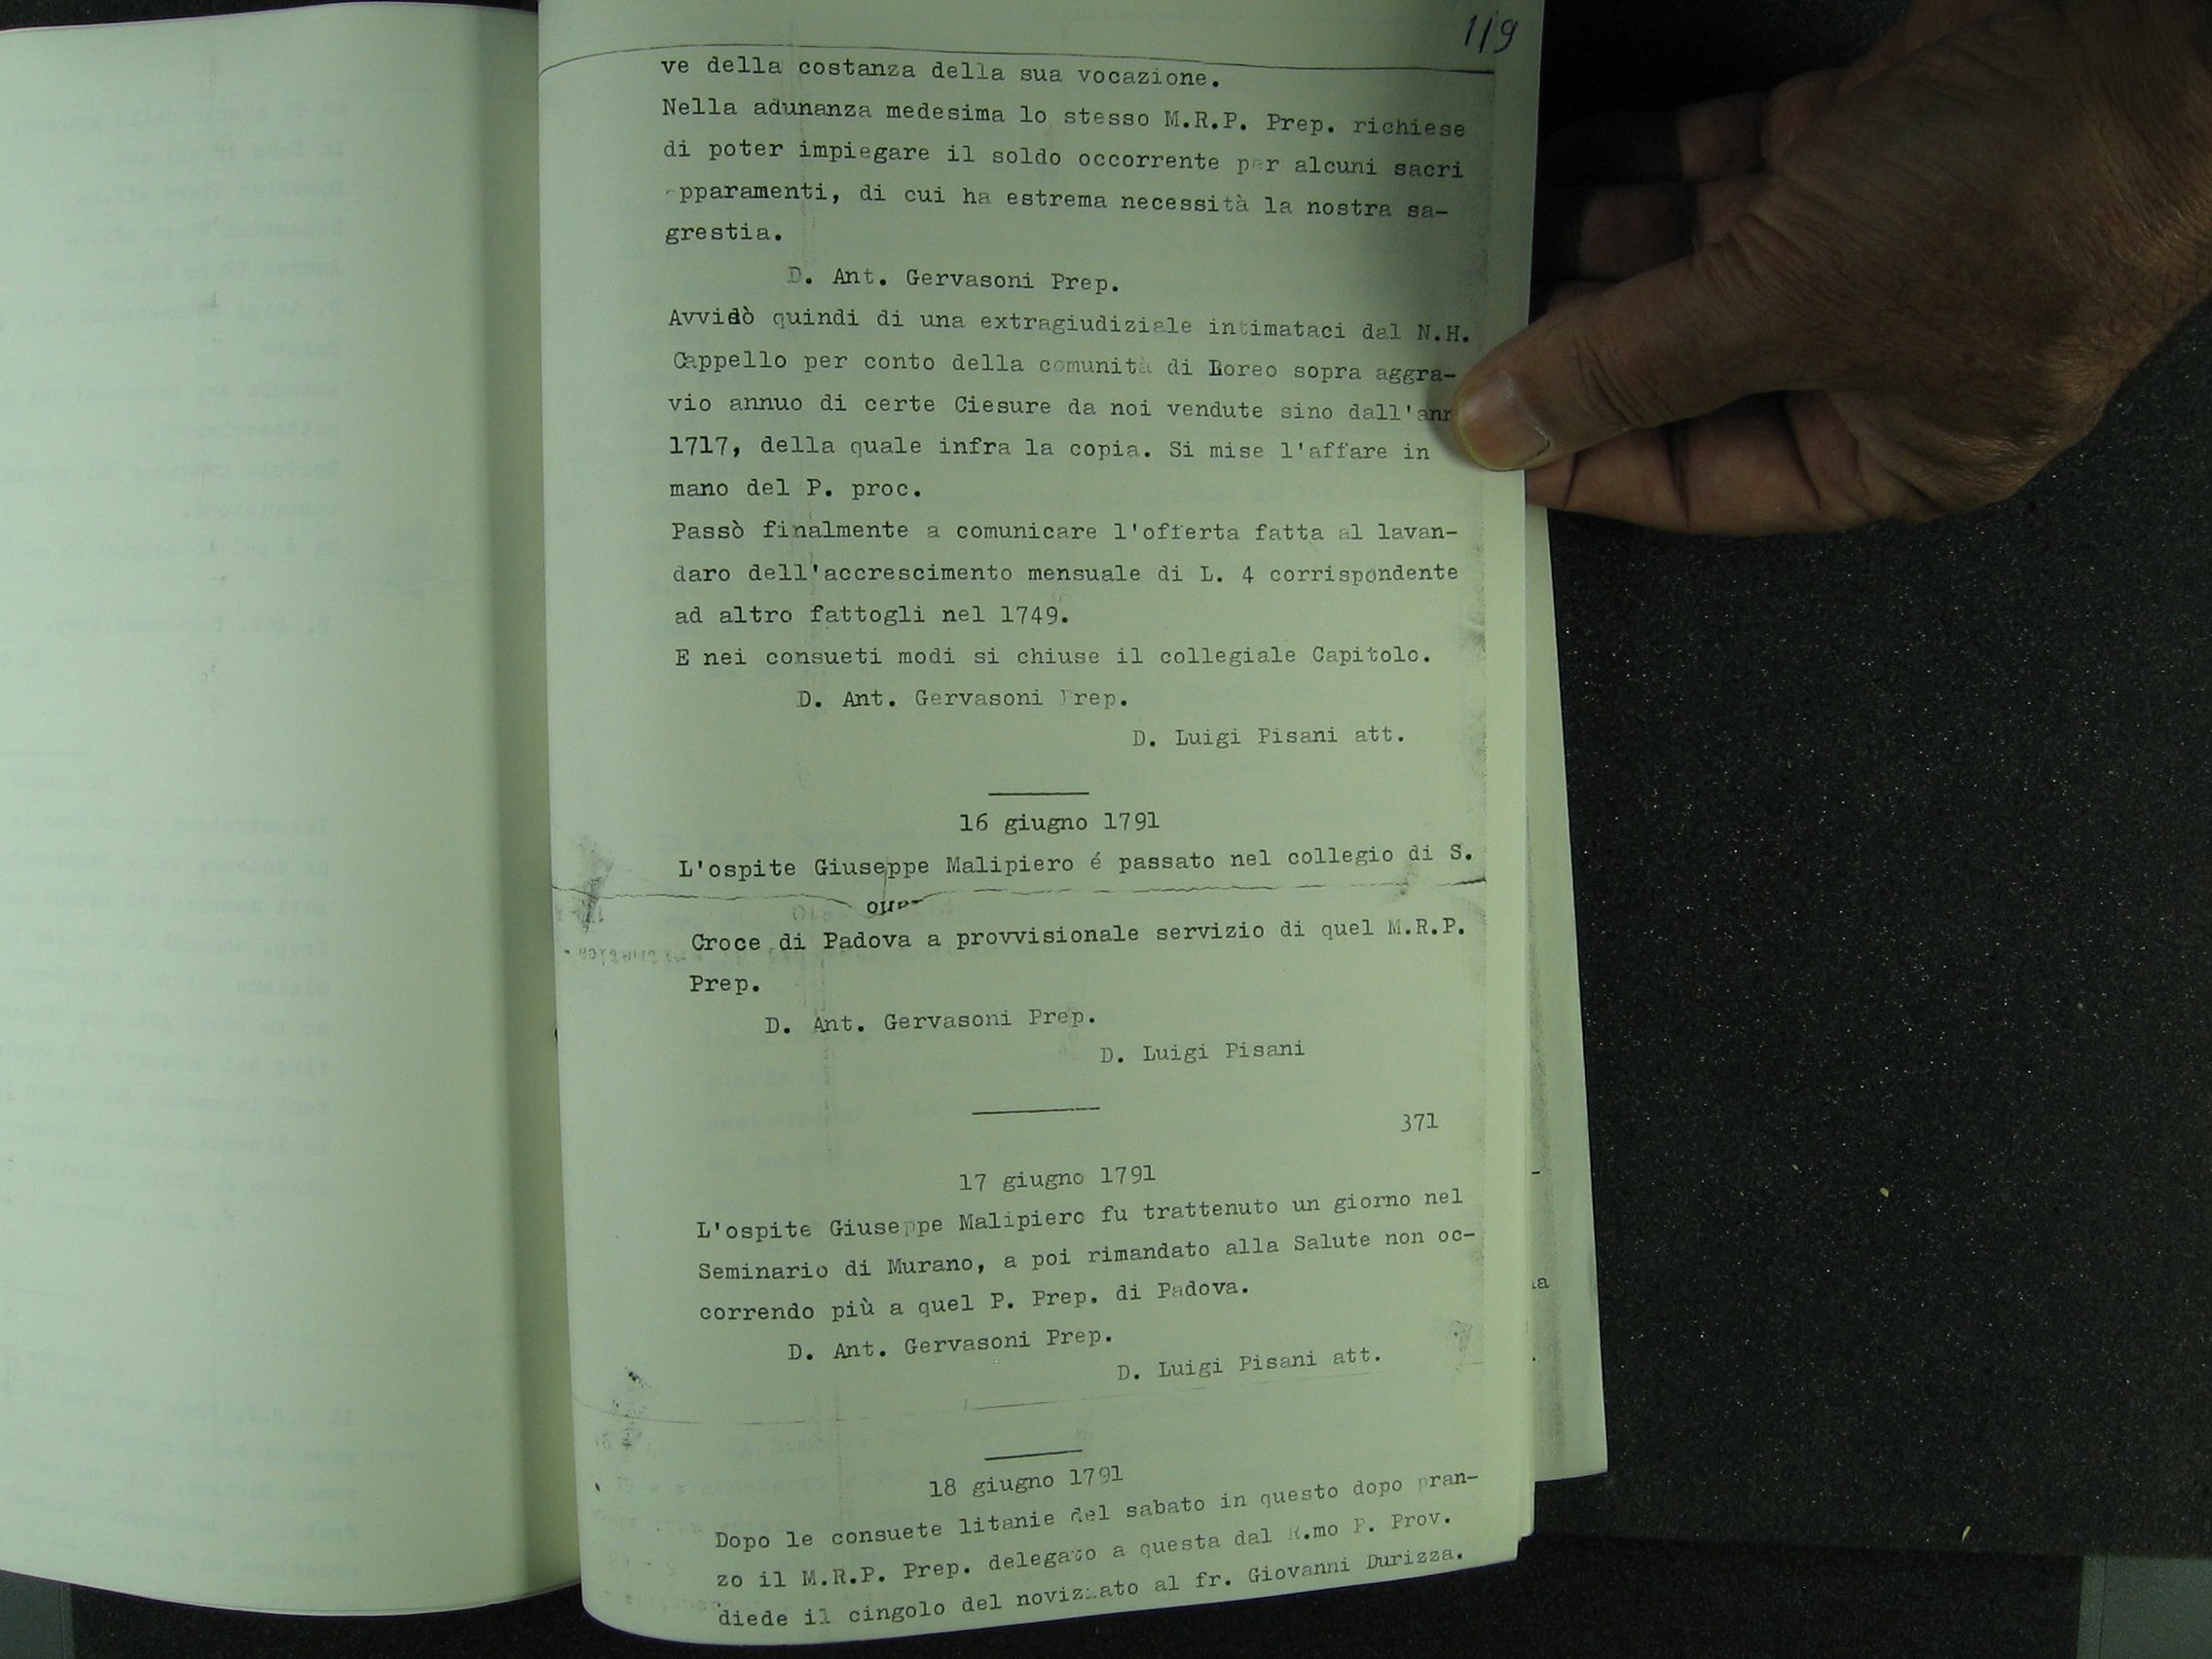 119
ve della costanza della sua vocazione.
Nella adunanza medesima lo stesso M.R.P. Prep. richiese
di poter impiegare il soldo occorrente per alcuni sacri
apparamenti, di cui ha estrema necessità la nostra sa-
grestia.
D. Ant. Gervasoni Prep.
Avvisò quindi di una extragiudiziale intimataci dal N.H.
Cappello per conto della comunità di Loreo sopra aggra-
vio annuo di certe Ciesure da noi vendute sino dall'ann
1717, della quale infra la copia. Si mise l'affare in
mano del P. proc.
Passò finalmente a comunicare l'offerta fatta al lavan-
daro dell'accrescimento mensuale di L. 4 corrispondente
ad altro fattogli nel 1749.
E nei consueti modi si chiuse il collegiale Capitolo.
D. Ant. Gervasoni Prep.
D. Luigi Pisani att.
16 giugno 1791
L'ospite Giuseppe Malipiero é passato nel collegio di S.
Croce di Padova a provvisionale servizio di quel M.R.P.
Prep.
D. Ant. Gervasoni Prep.
D. Luigi Pisani
371
17 giugno 1791
L'ospite Giuseppe Malipiero fu trattenuto un giorno nel
Seminario di Murano, a poi rimandato alla Salute non oc-
correndo più a quel P. Prep. di Padova.
D. Ant. Gervasoni Prep.
D. Luigi Pisani att.
18 giugno 1791
Dopo le consuete litanie del sabato in questo dopo pran-
zo il M.R.P. Prep. delegato a questa dal R.mo P. Prov.
diede il cingolo del noviziato al fr. Giovanni Durizza.